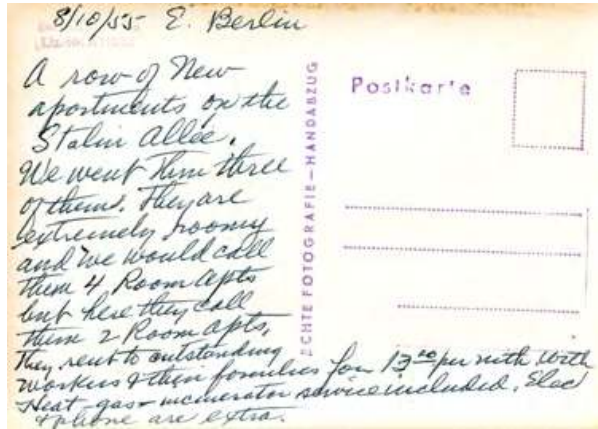 8/10/55 E. Berlin
A row of New
apartments on the
Stalin Allée.
We went thru three
of them. They are
extremely roomy
and we would call
them 4 Room Apts
but here they call
them 2 Room apts,
They rent to outstanding
workers & their families for 13.00 per mth with
Heat-gas-incinerator service included. Elec
& phone are extra.
ECHTE FOTOGRAFIE–HANDABZUG
Postkarte